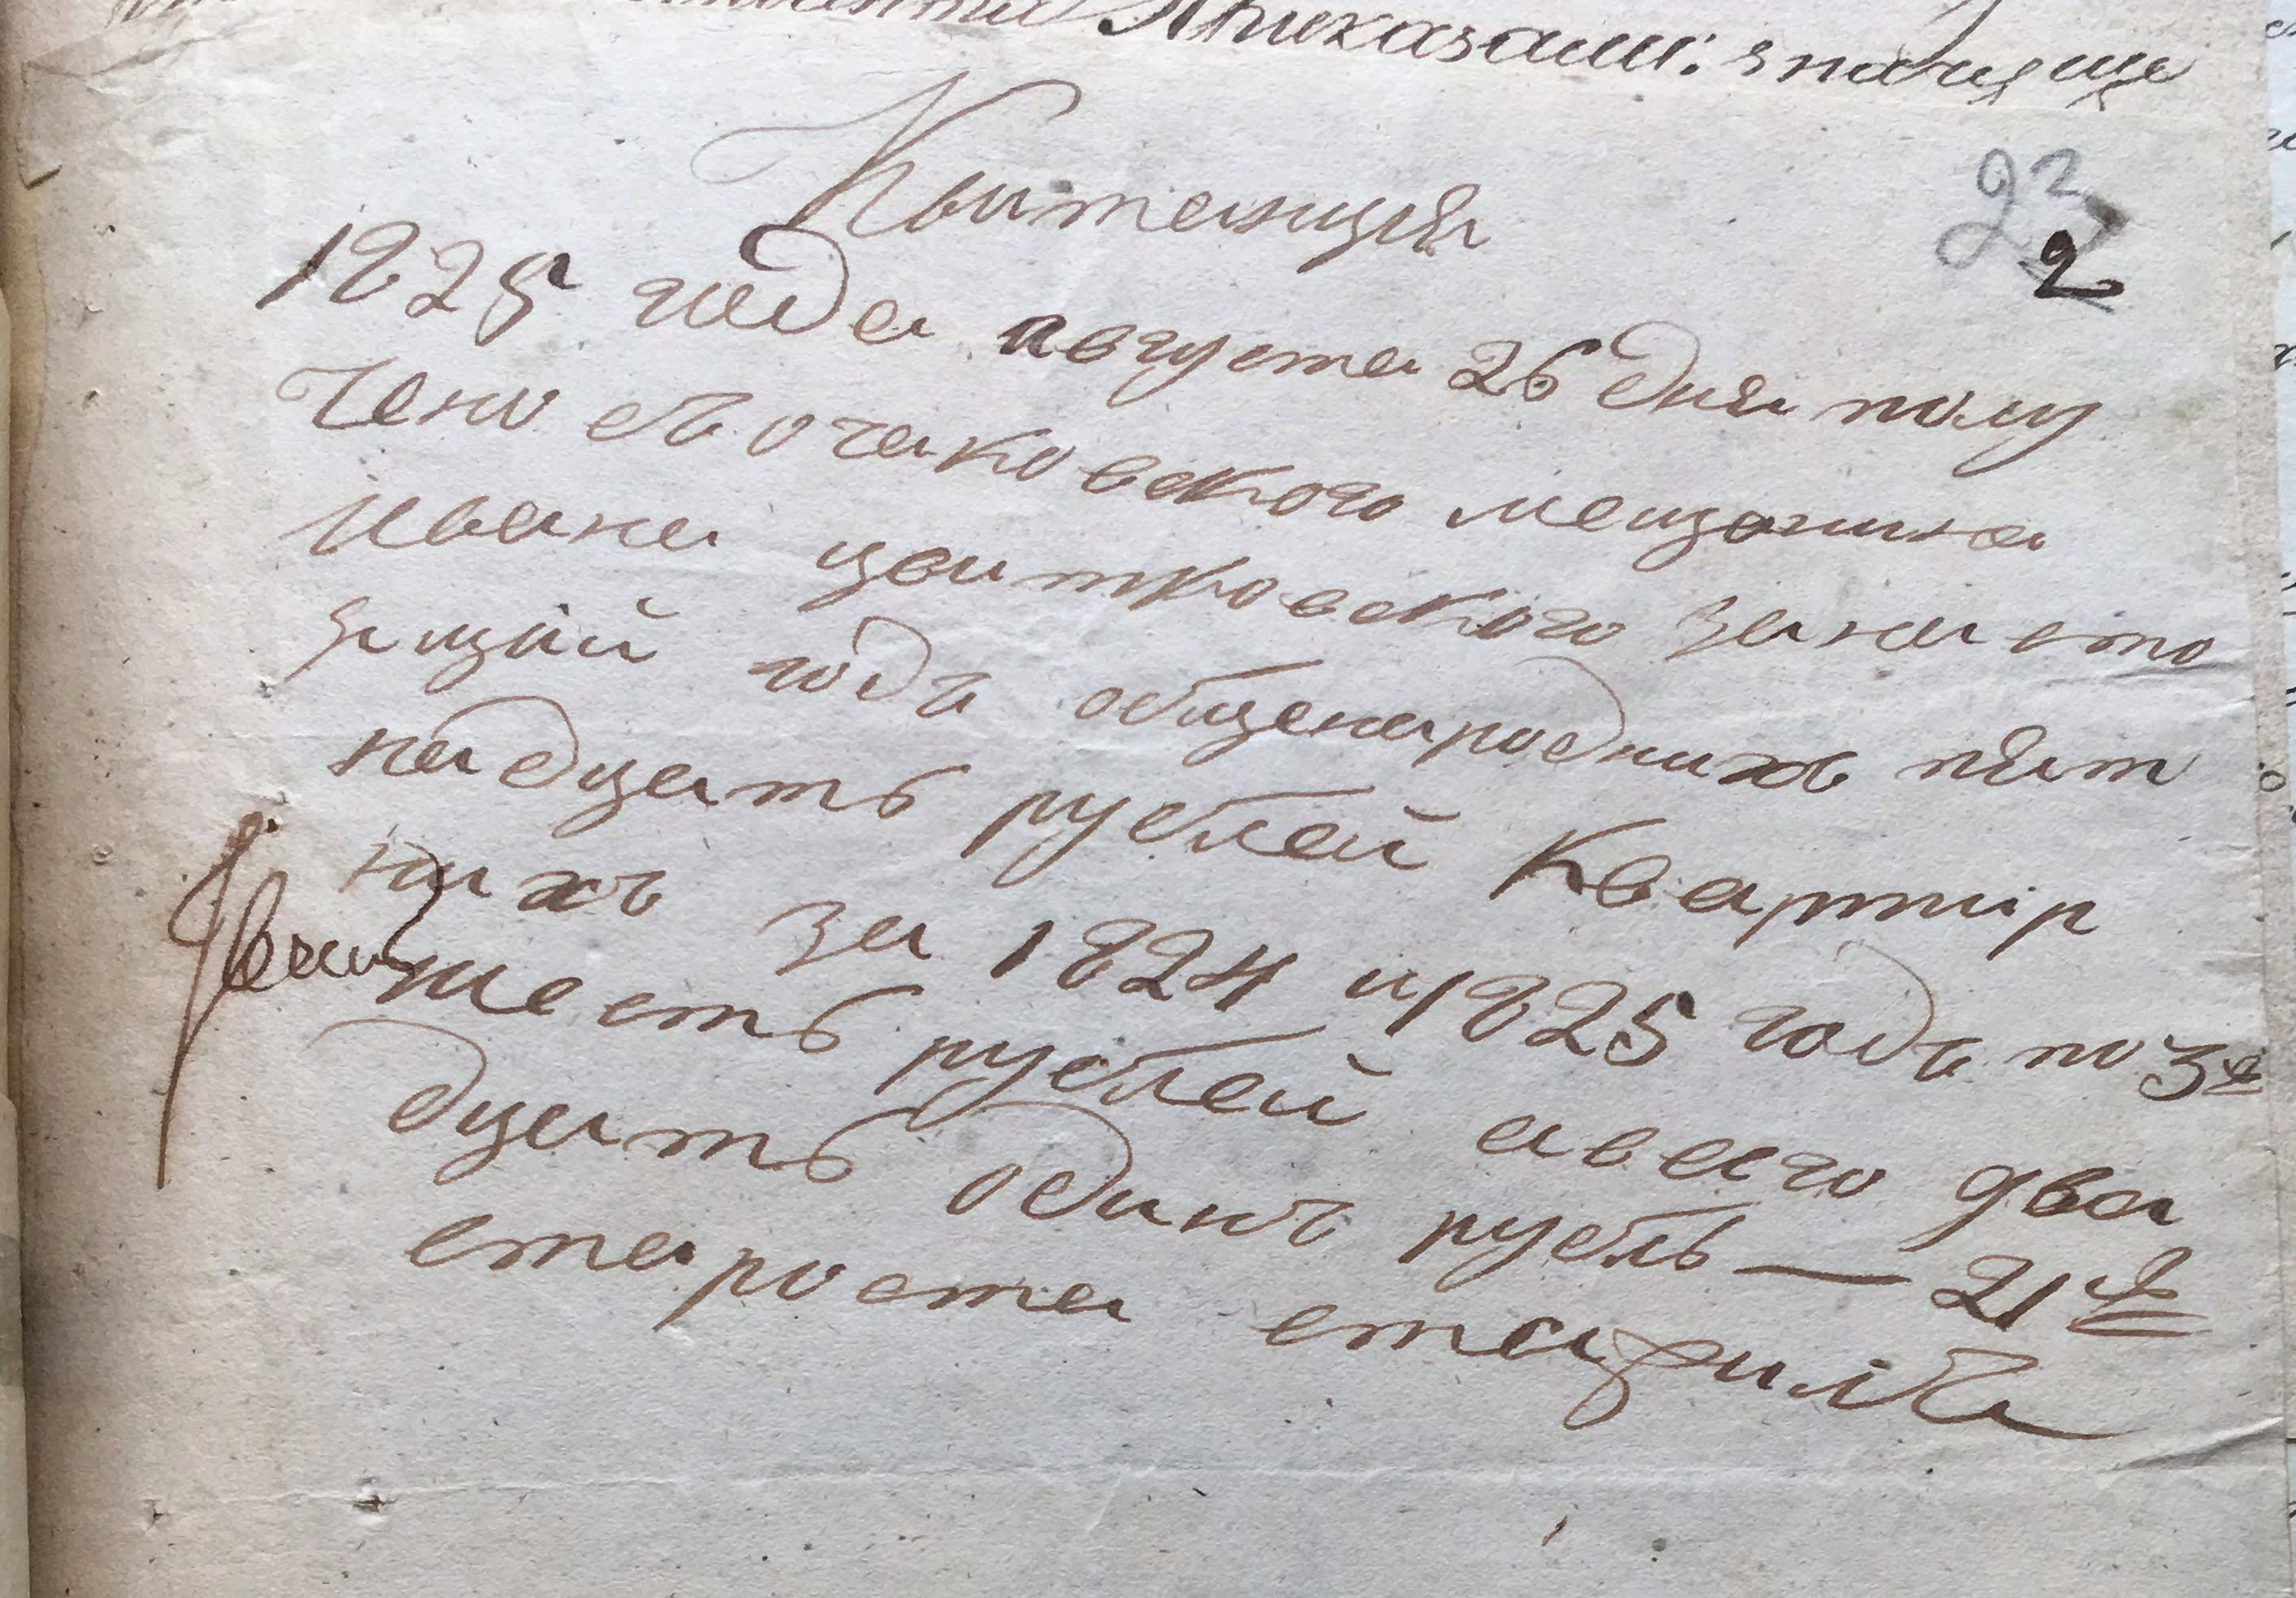 Приказами: значуще
Квитанция
22
2
1825 года августа 26 дня полу
чено съ очаковского мещанина
Ивана цвитковского за насто
ящий годъ общенародних пят
надцать рублей квартир
них за 1824 и 1825 годъ по 3 р
шесть рублей авсего два
дцать одинъ рубль — 21 р
староста